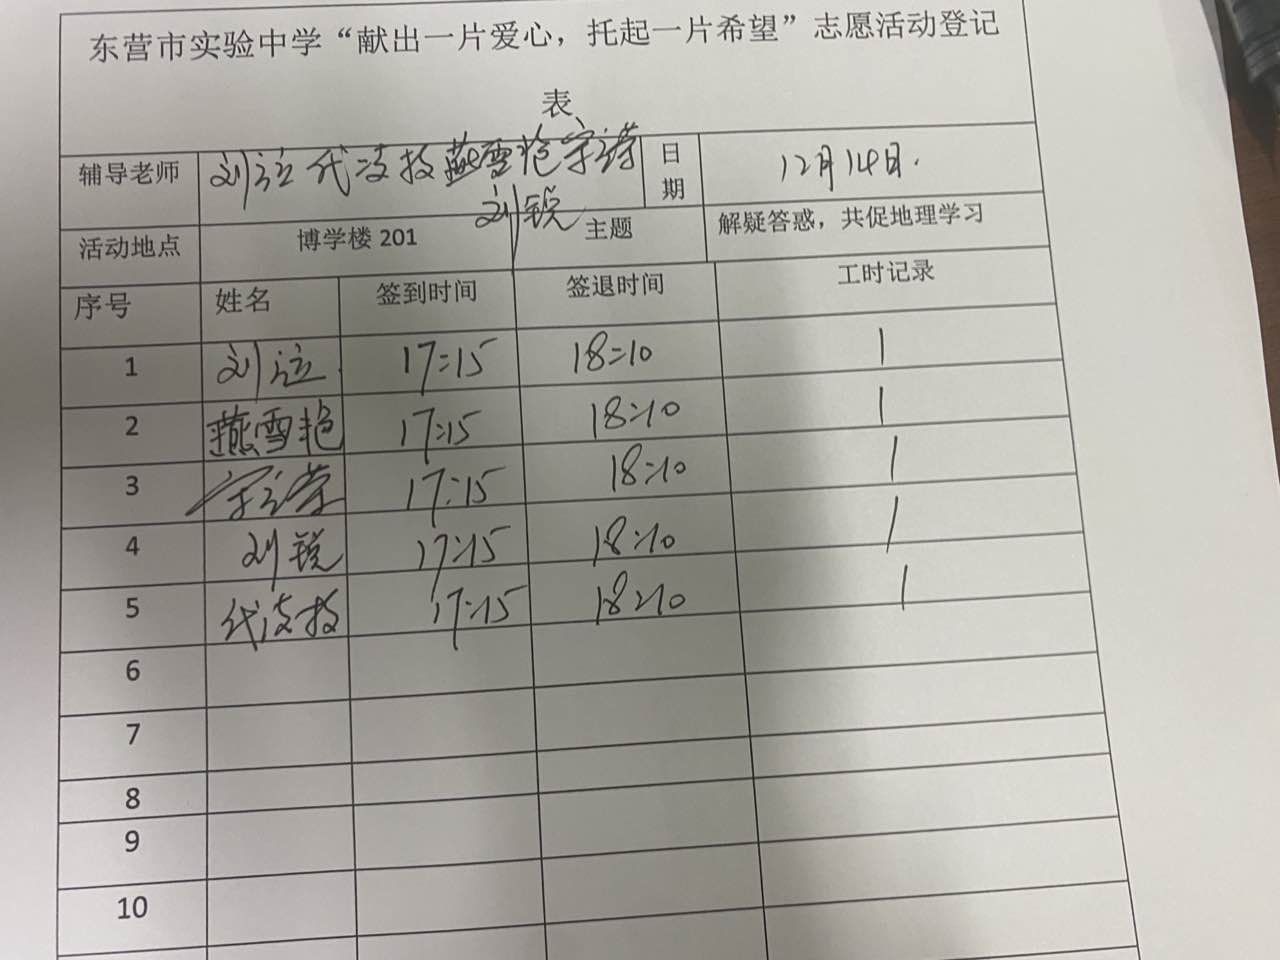 东营市实验中学“献出一片爱心，托起一片希望”志愿活动登记
表
辅导老师 燕雪艳 日期 12月14日.
刘锐
活动地点 博学楼 201 主题 解疑答惑，共促地理学习
序号 姓名 签到时间 签退时间 工时记录
1 17:15 18:10 1
2 燕雪艳 17:15 18:10 1
3 17:15 18:10 1
4 刘锐 17:15 18:10 1
5 17:15 18:10 1
6
7
8
9
10